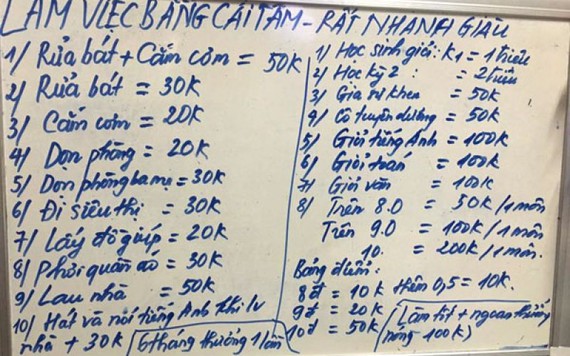 LÀM VIỆC BẰNG CÁI TÂM - RẤT NHANH GIÀU
1/ Rửa bát + Cắm cơm = 50K
2/ Rửa bát = 30K
3/ Cắm cơm = 20K
4/ Dọn phòng = 20K
5/ Dọn phòng ba mẹ = 30K
6/ Đi siêu thị = 30K
7/ Lấy đồ giúp = 20K
8/ Phơi quần áo = 30K
9/ Lau nhà = 50K
10/ Hát và nói tiếng Anh khi lv
nhà + 30K
6 tháng thưởng 1 lần
1/ Học sinh giỏi: K1 = 1 triệu
2/ Học kỳ 2: = 2 triệu
3/ Gia sư khen = 50K
4/ Cô tuyên dương = 50K
5/ Giỏi tiếng Anh = 100K
6/ Giỏi toán = 100K
7/ Giỏi văn = 100K
8/ Trên 8.0 = 50K/1 môn
Trên 9.0 = 100K/1 môn
10. = 200K/1 môn.
Bảng điểm:
8đ = 10K thêm 0,5 = 10K.
9đ = 20K
10đ = 50K
(Làm tốt + ngoan thưởng
nóng 100K)